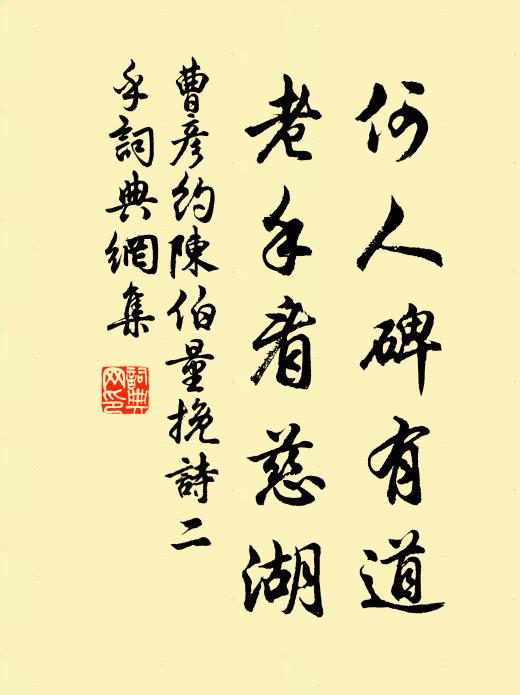 何人碑有道
老手看慈湖
曹彦約陳伯量挽詩二
手詞典網集
詞典
网印